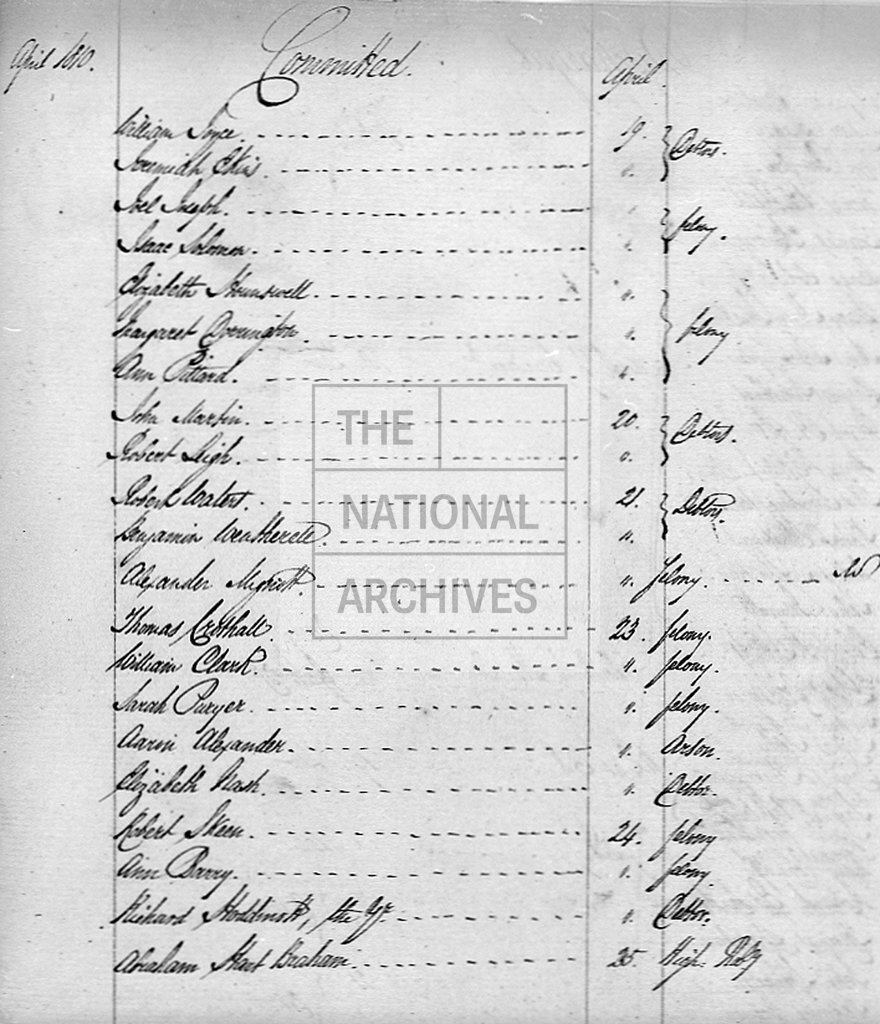 April 1810. Committed. April
William Joyce. 19. Debtors.
Jeremiah Ekins. "
Joel Joseph. " felony.
Isaac Solomon. "
Elizabeth Hounswell. "
Margaret Dorrington. " felony
Ann Pittard. "
John Martin. 20. Debtors.
Robert Leigh. "
Robert Waters. 21. Debtors.
Benjamin "
Alexander " felony.
Thomas 23. felony.
William Clark. " felony.
Sarah Puryer. " felony.
Aaron Alexander. " Arson.
Elizabeth Nash. " Debtor.
Robert Skeen. 24. felony
Ann Barry. " felony.
Richard Hoddinott, the Yr. " Debtor.
Abraham Hart Braham. 25. High. Roby
THE
NATIONAL
ARCHIVES